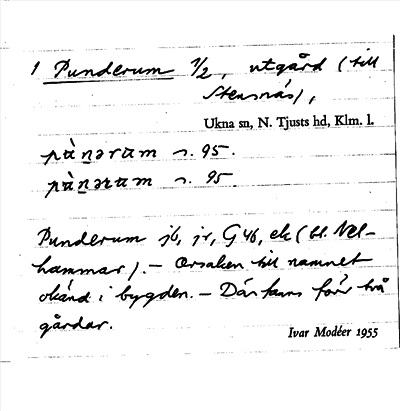 1 Punderum 1/2, utgård (till
Stensnäs),
Ukna sn, N. Tjusts hd, Klm. l.
pùn̲əram s. 95.
pùn̲əram s. 95
Punderum jb, jr, G 46, ek (bl. Nel-
hammar). – Orsaken till namnet
okänd i bygden. – Där fanns förr två
gårdar.
Ivar Modéer 1955